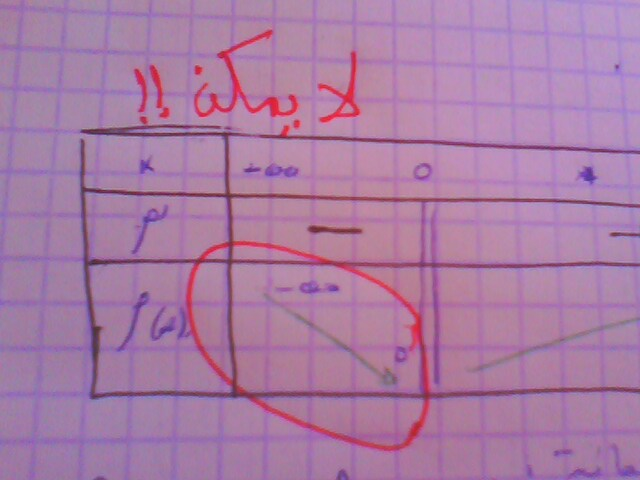 لا يمكن !!
x -∞ 0
f' — —
f(x) -∞ 0